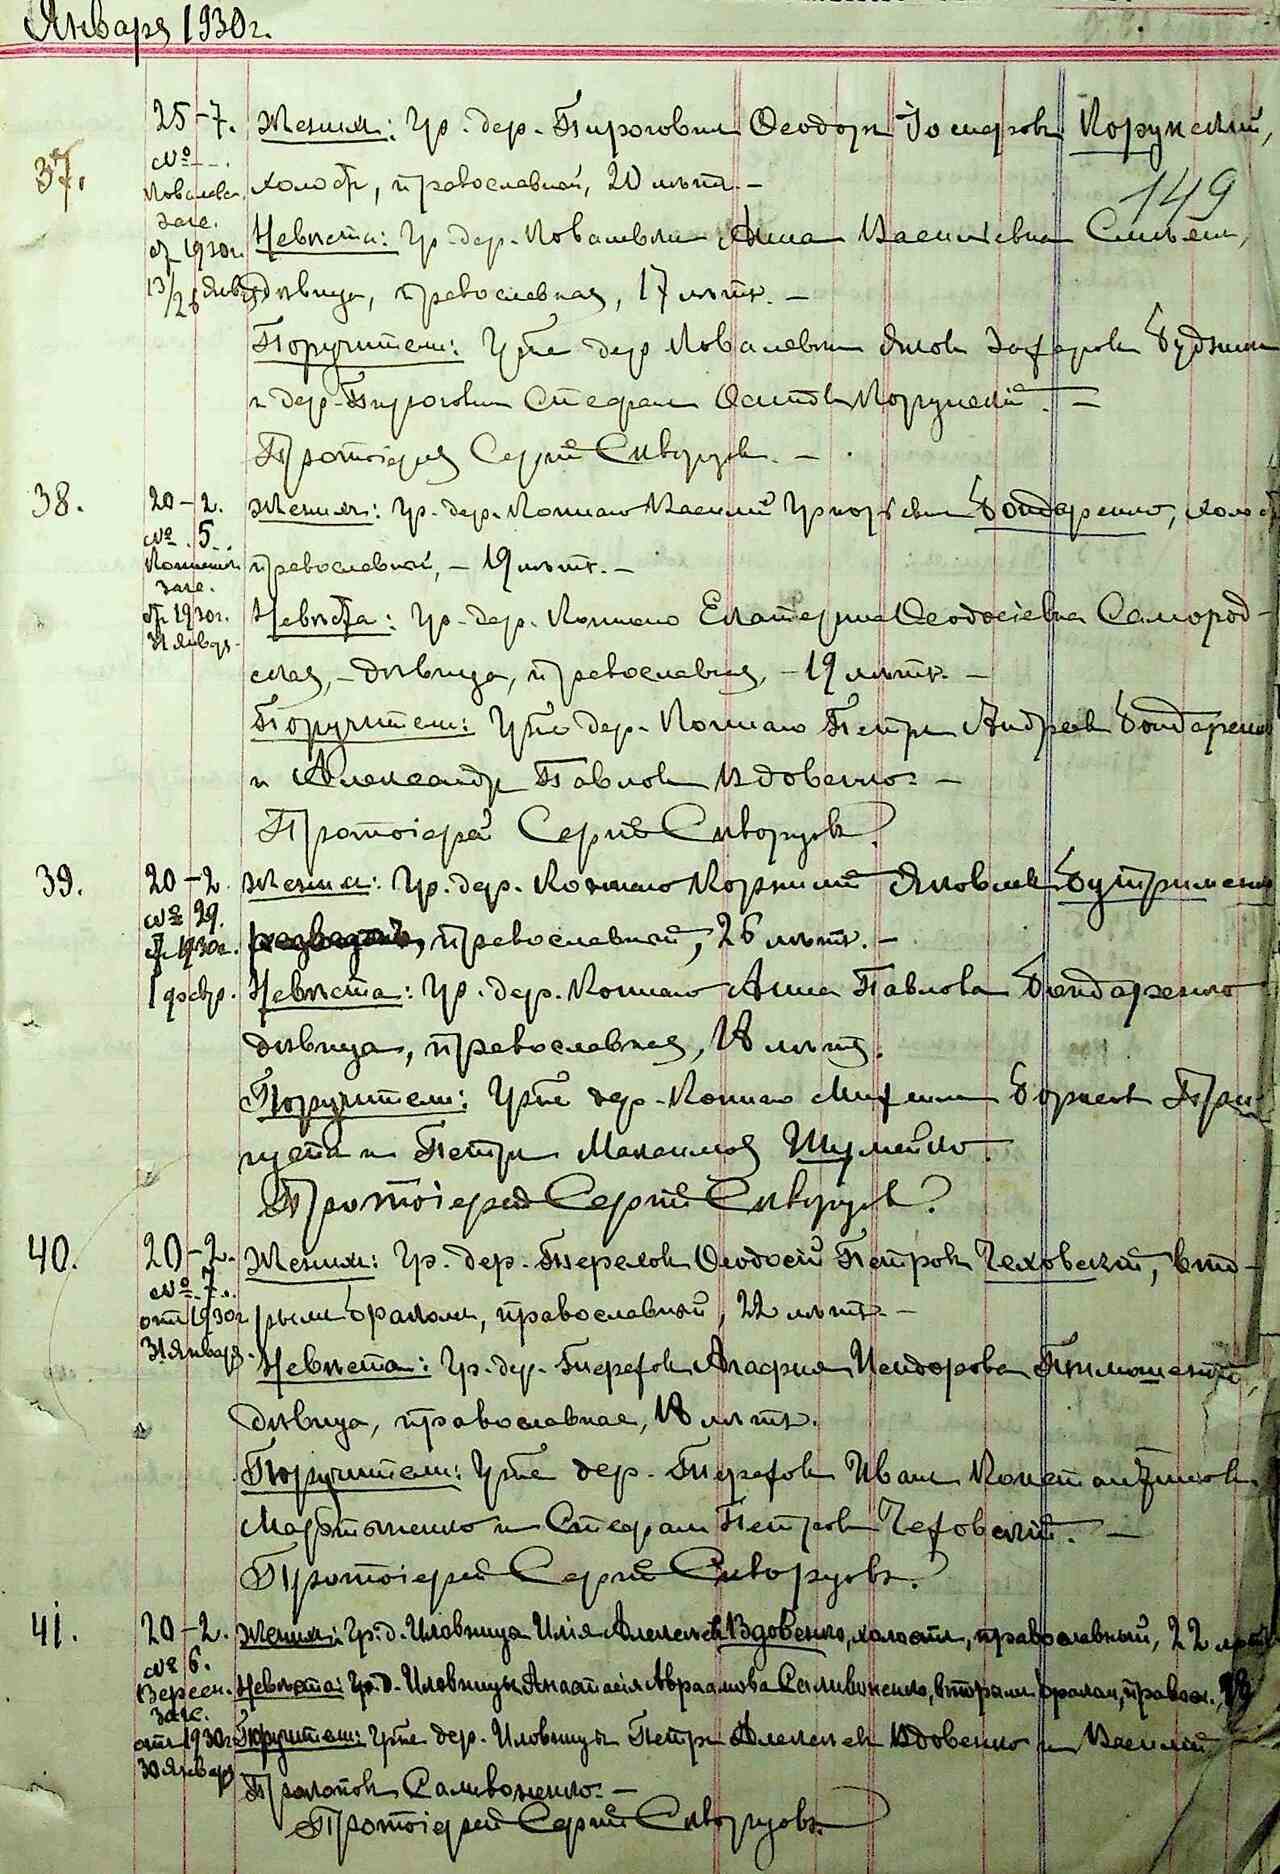 Января 1930 г.
37.
25-7.
№ —
Ковалевс.
загс.
от 1930г.
13/26 Янв.
Жених: Гр. дер. Пироговки Феодор Іосифов Корунский,
холост, православный, 20 летъ. –
149
Невеста: Гр. дер. Ковалевки Анна Васильевна
девица, православная, 17 летъ. –
Поручители: Гр-не дер. Ковалевки Яков Захаров
и дер. Пироговки Стефан Осипов Корунский. –
Протоіерей Сергій Скворцов. –
38.
20-2.
№ 5.
загс.
от 1930г.
31 январ.
Жених: Гр. дер. Копачо Василій Григорьевич Бондаренко, холост
православный, – 19 летъ. –
Невеста: Гр. дер. Копачо Екатерина Феодосіевна Самород-
ская, – девица, православная, – 19 летъ. –
Поручители: Гр-не дер. Копачо Петр Андреев Бондаренко
и Александр Павлов Вдовенко. –
Протоіерей Сергій Скворцов
39.
20-2.
№ 29.
от 1930г.
1 февр.
Жених: Гр. дер. Копачо Корнилій Яковлев
православный, 26 летъ. –
Невеста: Гр. дер. Копачо Анна Павлова Бондаренко
девица, православная, 18 летъ.
Поручители: Гр-не дер. Копачо Борисов
и Петр Максимов Шумейко.
Протоіерей Сергій Скворцов
40.
20-2.
№ 7.
от 1930г.
31 Январ.
Жених: Гр. дер. Феодосій Петров Чеховский, вто-
рым браком, православный, 22 летъ –
Невеста: Гр. дер. Агафия
девица, православная, 18 летъ.
Поручители: Гр-не дер. Иван Константинов
и Стефан Петров Чеховский. –
Протоіерей Сергій Скворцовъ.
41.
20-2.
№ 6.
загс.
от 1930г.
30 Январ.
Жених: Гр. д. Иловница Илія Алексеев Вдовенко, холост, православный, 22 летъ
Невеста: Гр. д. Иловницы Анастасія Авраамова Саливоненко, вторым браком, правосл.,
Поручители: Гр-не дер. Иловницы Петр Алексеев Вдовенко и Василій
Саливоненко. –
Протоіерей Сергій Скворцовъ.